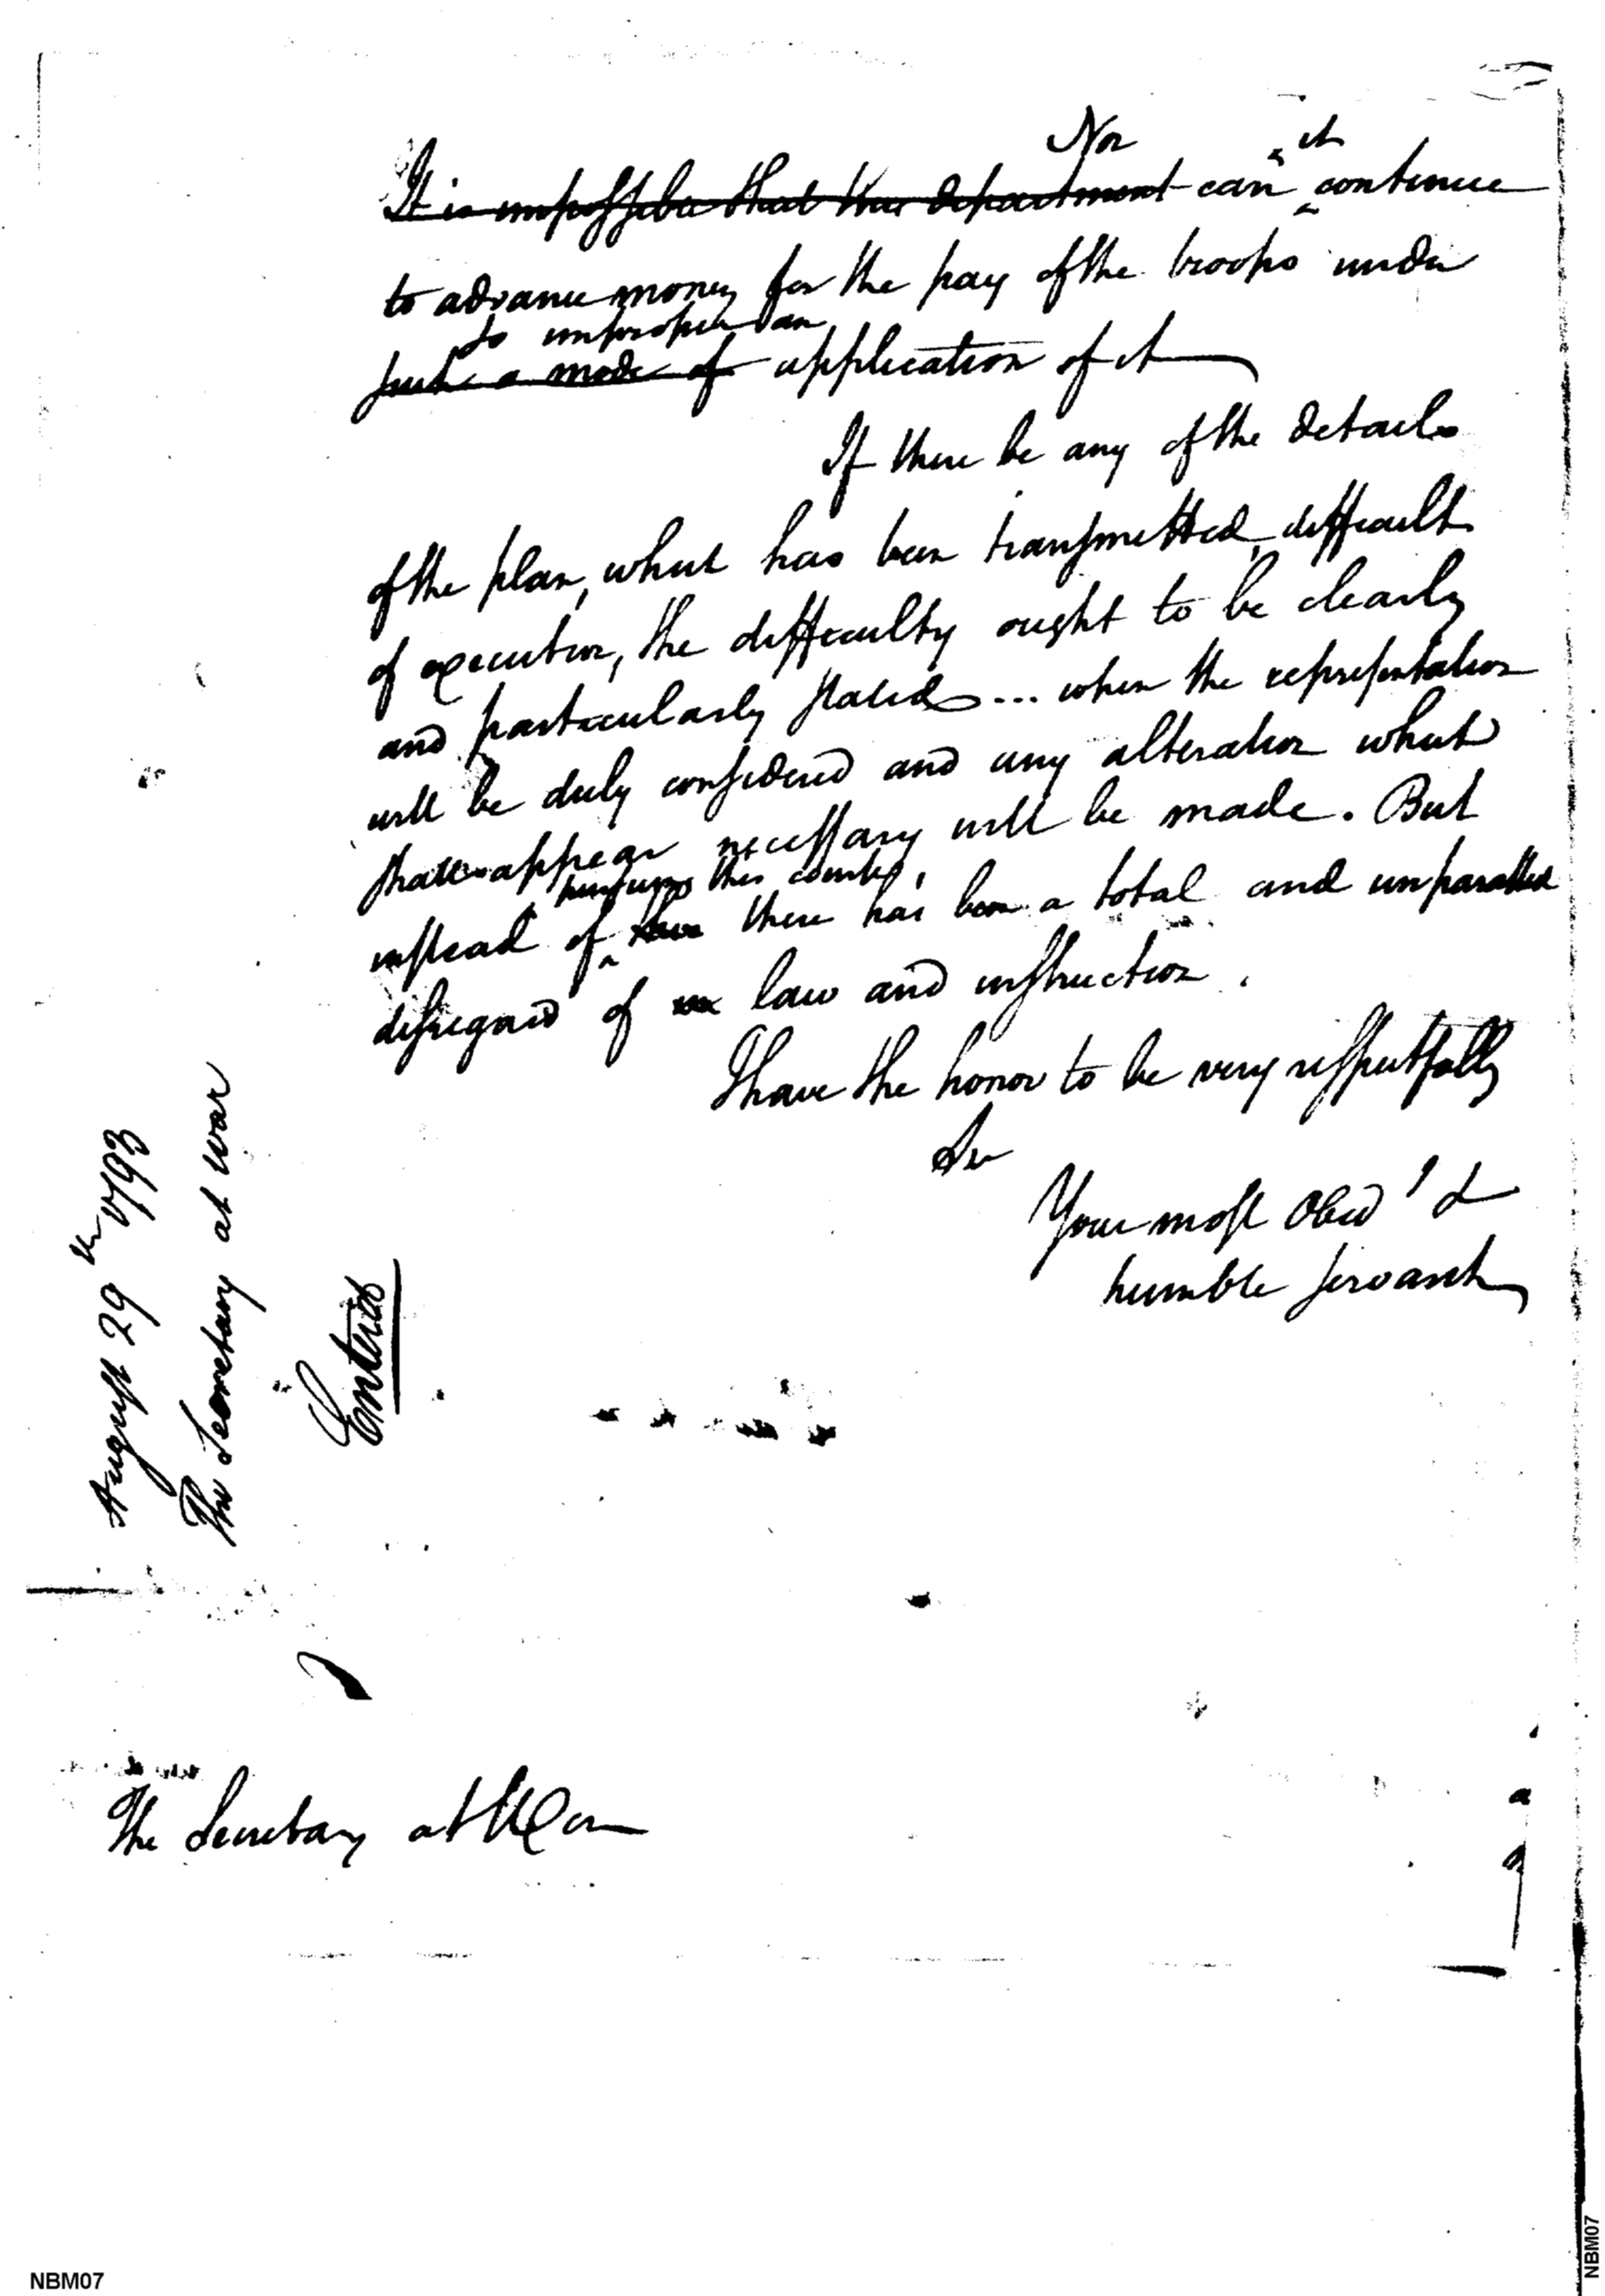 Nor it
It is impossible that this department can continue
to advance money for the pay of the troops under
so improper an
such a mode of application of it
If there be any of the details
of the plan, which has been transmitted, difficult
of execution, the difficulty ought to be clearly
and particularly stated ... when the representation
will be duly considered and any alteration which
shall appear necessary will be made. But
pursuing this course,
instead of there has been a total and unparalled
disregard of law and instruction.
I have the honor to be very respectfully
Sir
Your most Obed t &
humble servant
August 29 th 1793
The Secretary at war
Entered
The Secretary at War
NBM07
NBM07